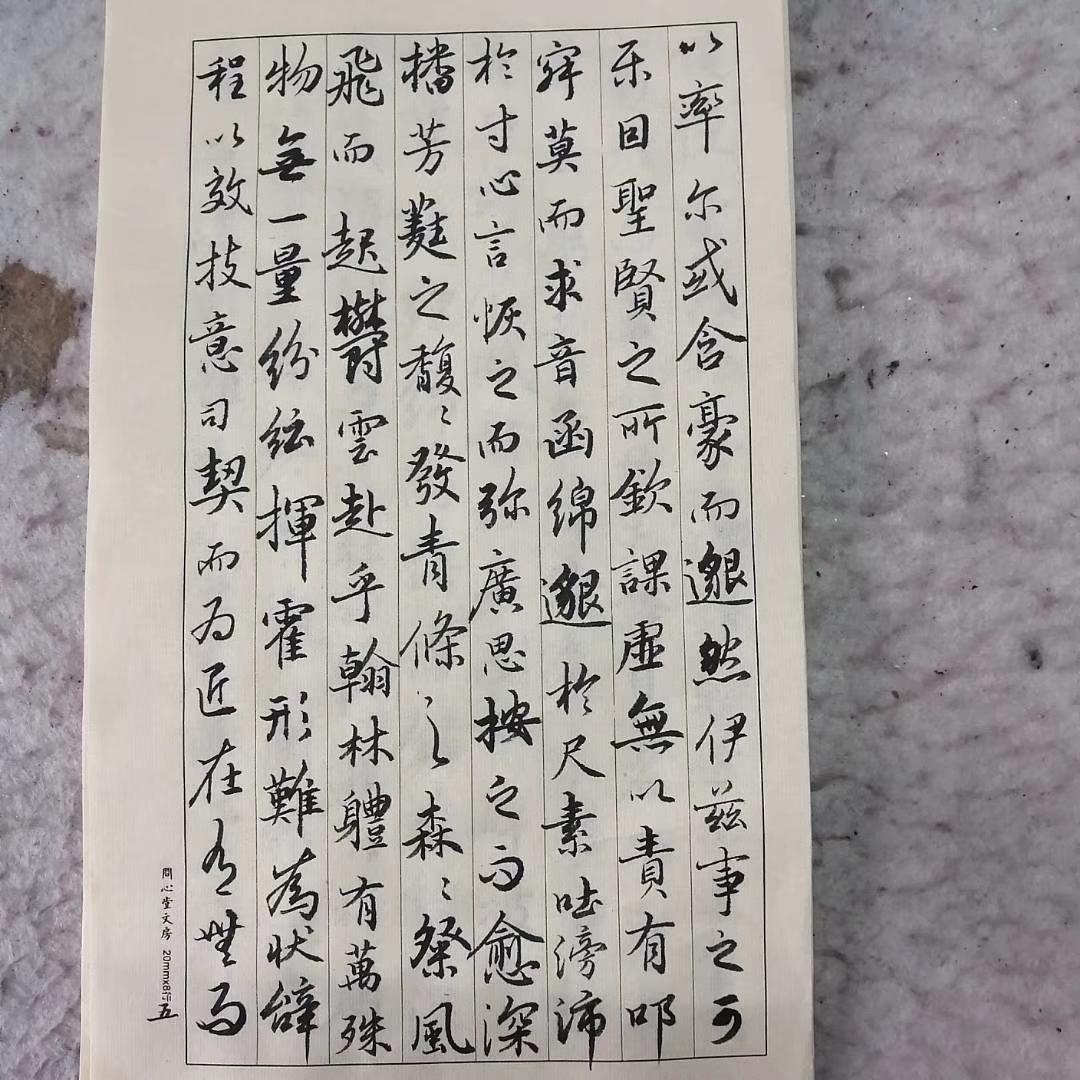 以率尔或含豪而邈然伊兹事之可
乐固聖賢之所欽課虛無以責有叩
寂莫而求音函绵邈於尺素吐滂沛
於寸心言恢之而弥廣思按之而愈深
播芳蕤之馥〻發青條之森〻粲風
飛而起鬱雲赴乎翰林體有萬殊
物無一量纷纭揮霍形難為状辭
程以效技意司契而为匠在有無而
問心堂文房 20mmx8行 五